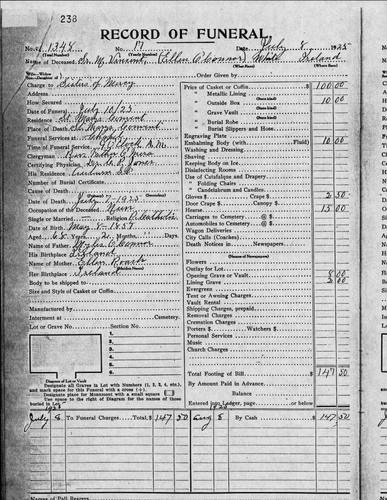 238
RECORD OF FUNERAL
No. 1348 No. 17 Date, July 8, 1925
Name of Deceased Sr. M. Vincent, (Ellen O'Connor) White Ireland
Charge to Sisters of Mercy Order Given by
Address Price of Casket or Coffin $100.00
How Secured " Metallic Lining
Date of Funeral July 10/25 " Outside Box 10 00
Residence St. Marys Convent " Grave Vault
Place of Death St. Marys Convent " Burial Robe
Funeral Services at Chapel " Burial Slippers and Hose
Time of Funeral Service 9 O'Clock A.M. Engraving Plate
Clergyman Rev. Father Embalming Body (with Fluid) 10 00
Certifying Physician Jones Washing and Dressing
His Residence Shaving
Number of Burial Certificate Keeping Body on Ice
Cause of Death Disinfecting Rooms
Date of Death July 7-1925 Use of Catafalque and Drapery
Occupation of the Deceased Nun " Folding Chairs
Single or Married Religion Catholic " Candelabrum and Candles
Date of Birth May 1857 Gloves $ Crape $ 2 50
Aged 68 Years 2 Months Days Door Crape $ Canopy $
Name of Father O'Connor Hearse 15.00
His Birthplace Ireland Carriages to Cemetery @ $
Name of Mother Ellen Roach Automobiles to Cemetery @ $
Her Birthplace Ireland Wagon Deliveries
Body to be shipped to City Calls (Coaches)
Size and Style of Casket or Coffin Death Notices in Newspapers
(Names of Newspapers)
Flowers
Outlay for Lot
Manufactured by Opening Grave or Vault 8 00
Interment at Cemetery. Lining Grave 2 00
Lot or Grave No. Section No. Evergreen
1 Tent or Awning
2 Vault Rental
3 Shipping Charges, prepaid
4 Removal Charges
5 Cremation Charges
6 Porters $ Watchers $
Personal Services
Music
Church Charges
Diagram of Lot or Vault
Designate all Graves in Lot with Numbers (1, 2, 3, 4, etc.), Total Footing of Bill $147 50
and mark space for this Funeral with a cross (+). By Amount Paid in Advance
Designate place for Monument with a small square Balance
Use space to the right of Diagram for the names of those buried in Lot. Entered into Ledger, page or below.
July 8 To Funeral Charges, Total, $147 50 Aug 8 By Cash $147 50